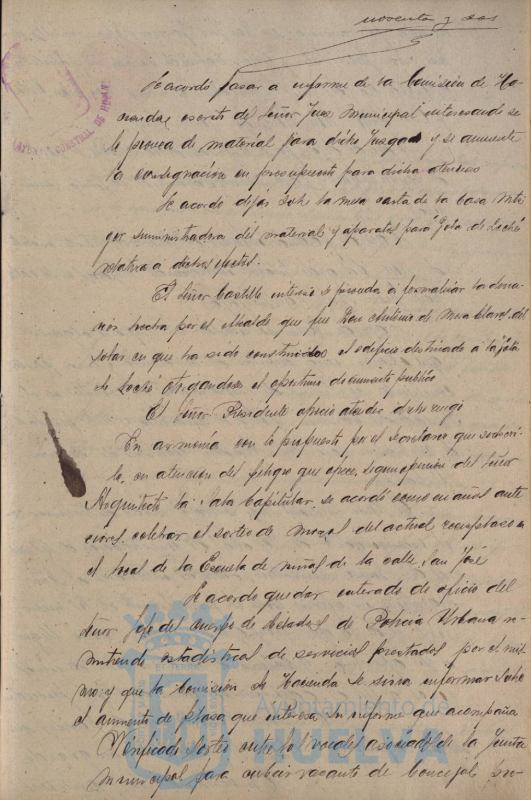 noventa y dos
Se acordó pasar a informe de la Comisión de Ha-
cienda, escrito del Señor Juez Municipal interesando se
le provea de material para dicho Juzgado y se aumente
la consignación en presupuesto para dicha atención
Se acordó dejar sobre la mesa carta de la Casa
suministradora del material y aparatos para "Gota de Leche"
relativa a dichos efectos.
El Señor Castillo interesó se proceda a formalizar la dona-
ción hecha por el Alcalde que fue Don Antonio de Mora Claros del
solar en que ha sido construido el edificio destinado a la Gota
de Leche otorgandose el oportuno documento público
El Señor Presidente ofreció atender dicho ruego
En armonía con lo propuesto por el Secretario que suscri-
be, en atención del peligro que ofrece, segun opinión del Señor
Arquitecto la Sala Capitular, se acordó como en años ante
riores, celebrar el sorteo de mozos del actual reemplazo en
el local de la Escuela de niñas de la calle San José
Se acordó quedar enterado de oficio del
Señor Jefe del Cuerpo de Celadores de Policía Urbana re-
mitiendo estadística de servicios prestados por el mis
mo; y que la Comisión de Hacienda se sirva informar sobre
el aumento de plaza que interesa en informe que acompaña
Verificado sorteo entre los vocales asociados de la Junta
municipal para cubrir vacante de Concejal pro-
Ayuntamiento de
HUELVA